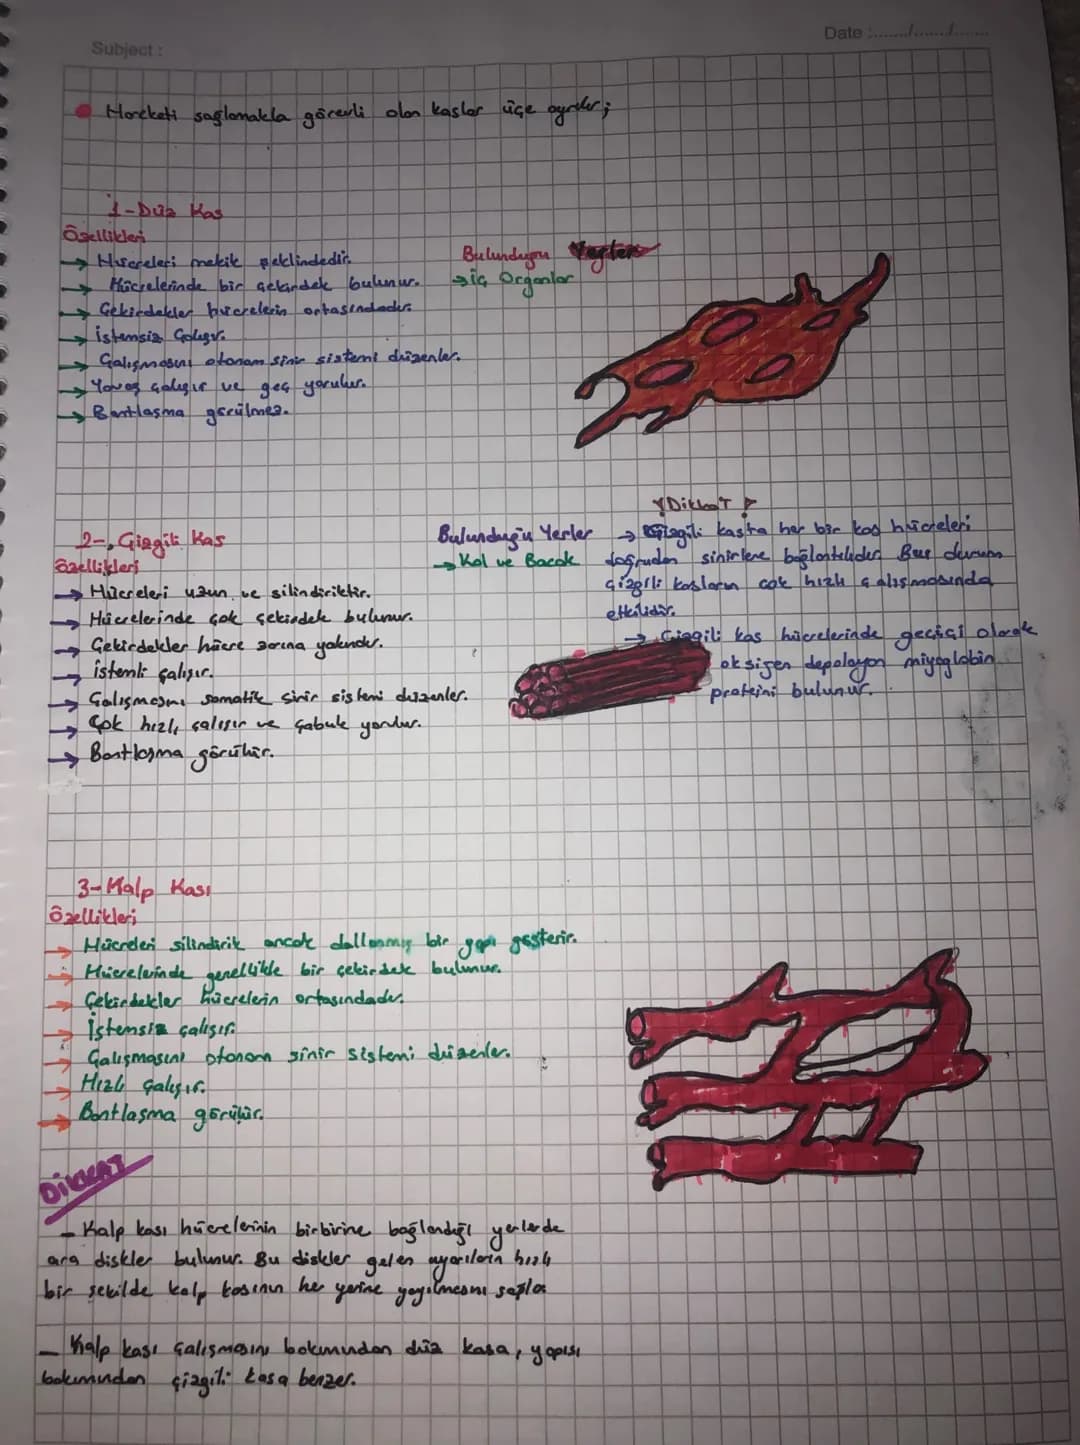 Subject :
Date :......./......./.......
Hareketi sağlamakla görevli olan kaslar üçe ayrılır;
1-Düz Kas
Özellikleri
→ Hücreleri mekik şeklindedir.
→ Hücrelerinde bir çekirdek bulunur.
→ Çekirdekler hücrelerin ortasındadır.
→ İstemsiz Çalışır.
→ Çalışmasını otonom sinir sistemi düzenler.
→ Yavaş çalışır ve geç yorulur.
→ Bantlaşma görülmez.
Bulunduğu Yerler
→ İç Organlar
2-, Çizgili Kas
Özellikleri
→ Hücreleri uzun ve silindiriktir.
→ Hücrelerinde çok çekirdek bulunur.
→ Çekirdekler hücre zarına yakındır.
→ İstemli çalışır.
→ Çalışmasını somatik sinir sistemi düzenler.
→ Çok hızlı çalışır ve çabuk yorulur.
→ Bantlaşma görülür.
Bulunduğu Yerler
→ Kol ve Bacak
! DikkaT !
→ Çizgili kasta her bir kas hücreleri
doğrudan sinirlere bağlantılıdır. Bu durum
çizgili kasların çok hızlı çalışmasında
etkilidir.
→ Çizgili kas hücrelerinde geçici olarak
oksijen depolayan miyoglobin
proteini bulunur.
3-Kalp Kası
Özellikleri
→ Hücreleri silindirik ancak dallanmış bir yapı gösterir.
→ Hücrelerinde genellikle bir çekirdek bulunur.
→ Çekirdekler hücrelerin ortasındadır.
→ İstemsiz çalışır.
→ Çalışmasını otonom sinir sistemi düzenler.
→ Hızlı çalışır.
→ Bantlaşma görülür.
DİKKAT
- Kalp kası hücrelerinin birbirine bağlandığı yerlerde
ara diskler bulunur. Bu diskler gelen uyarıların hızlı
bir şekilde kalp kasının her yerine yayılmasını sağlar
- Kalp kası çalışmasını bakımından düz kasa, yapısı
bakımından çizgili kasa benzer.